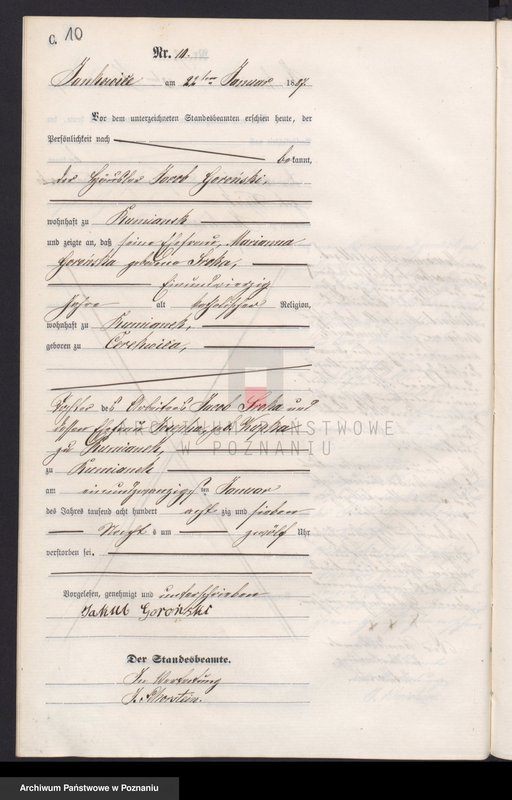 C. 10
Nr. 10.
am 22ten Januar 1887.
Vor dem unterzeichneten Standesbeamten erschien heute, der
Persönlichkeit nach
bekannt,
der Häusler Jacob Goroński,
wohnhaft zu Rumianek
und zeigte an, daß seine Ehefrau, Marianna
Gorońska geborene Sroka,
Jahre alt katholischer Religion,
wohnhaft zu Rumianek,
geboren zu Cerekwica,
Tochter des Arbeiters Jacob Sroka und
dessen Ehefrau
ARCHIWUM PAŃSTWOWE
W POZNANIU
zu Rumianek,
zu Rumianek
am einundzwanzigsten Januar
des Jahres tausend acht hundert achtzig und sieben
Nachts um zwölf Uhr
verstorben sei.
Vorgelesen, genehmigt und unterschrieben
Jakub Goroński
Der Standesbeamte.
In Vertretung
Archiwum Państwowe w Poznaniu